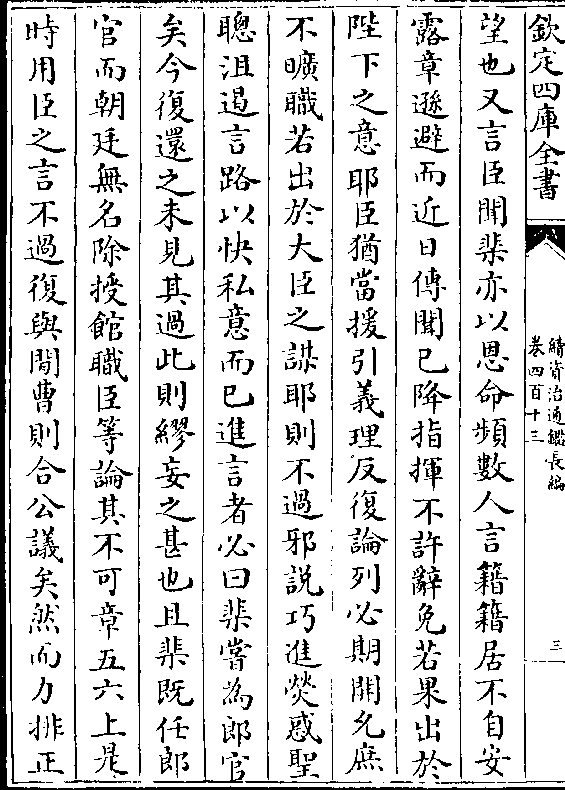 欽定四庫全書
續資治通鑑長編
卷四百十三
三
望也又言臣聞棐亦以恩命頻數人言籍籍居不自安
露章遜避而近日傳聞已降指揮不許辭免若果出於
陛下之意耶臣猶當援引義理反復論列必期開允庶
不曠職若出於大臣之謀耶則不過邪説巧進熒惑聖
聰沮遏言路以快私意而已進言者必曰棐嘗為郎官
矣今復還之未見其過此則繆妄之甚也且棐既任郎
官而朝廷無名除授館職臣等論其不可章五六上是
時用臣之言不過復與閒曹則合公議矣然而力排正